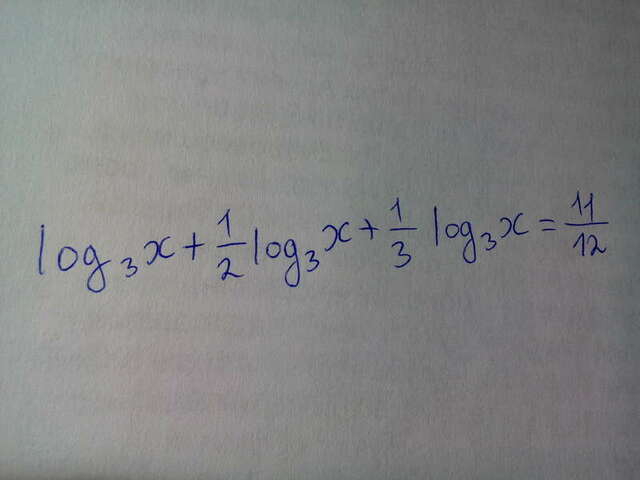 log₃x + 1/2 log₃x + 1/3 log₃x = 11/12